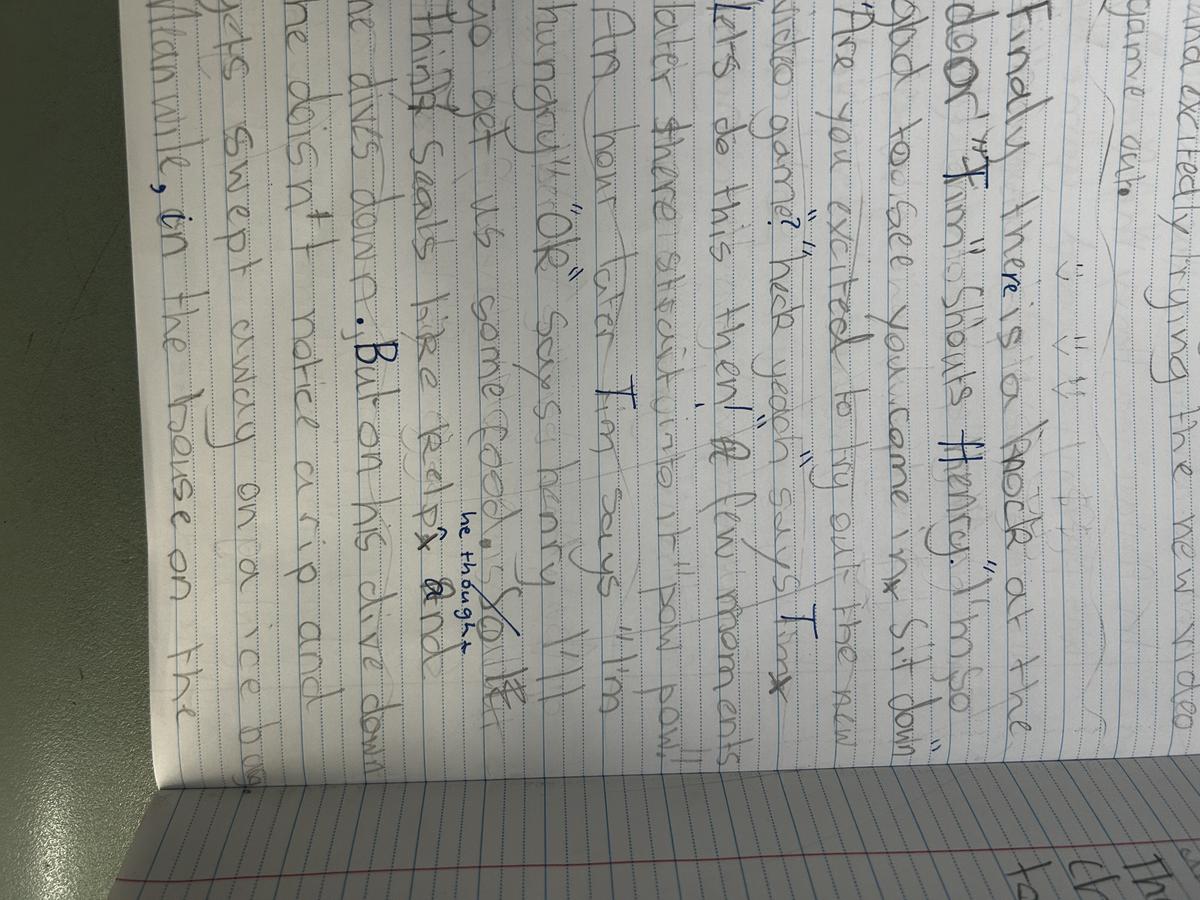 and excitedly trying the new video
game out.
Finally there is a knock at the
door "Tim" Shouts Henry. "I'm so
glad to see you come in Sit down"
"Are you excited to try out the new
video game?" "heck yeah" says Tim
"lets do this then!" A few moments
later there straight into it "pow pow"
An hour later Tim says "I'm
hungry" "Ok" says henry I'll
go get us some food.
he thought
thing seals like kelp and
he dives down. But on his dive down
he doisn't notice a rip and
gets swept away on a ice burg.
Meanwile, in the house on the